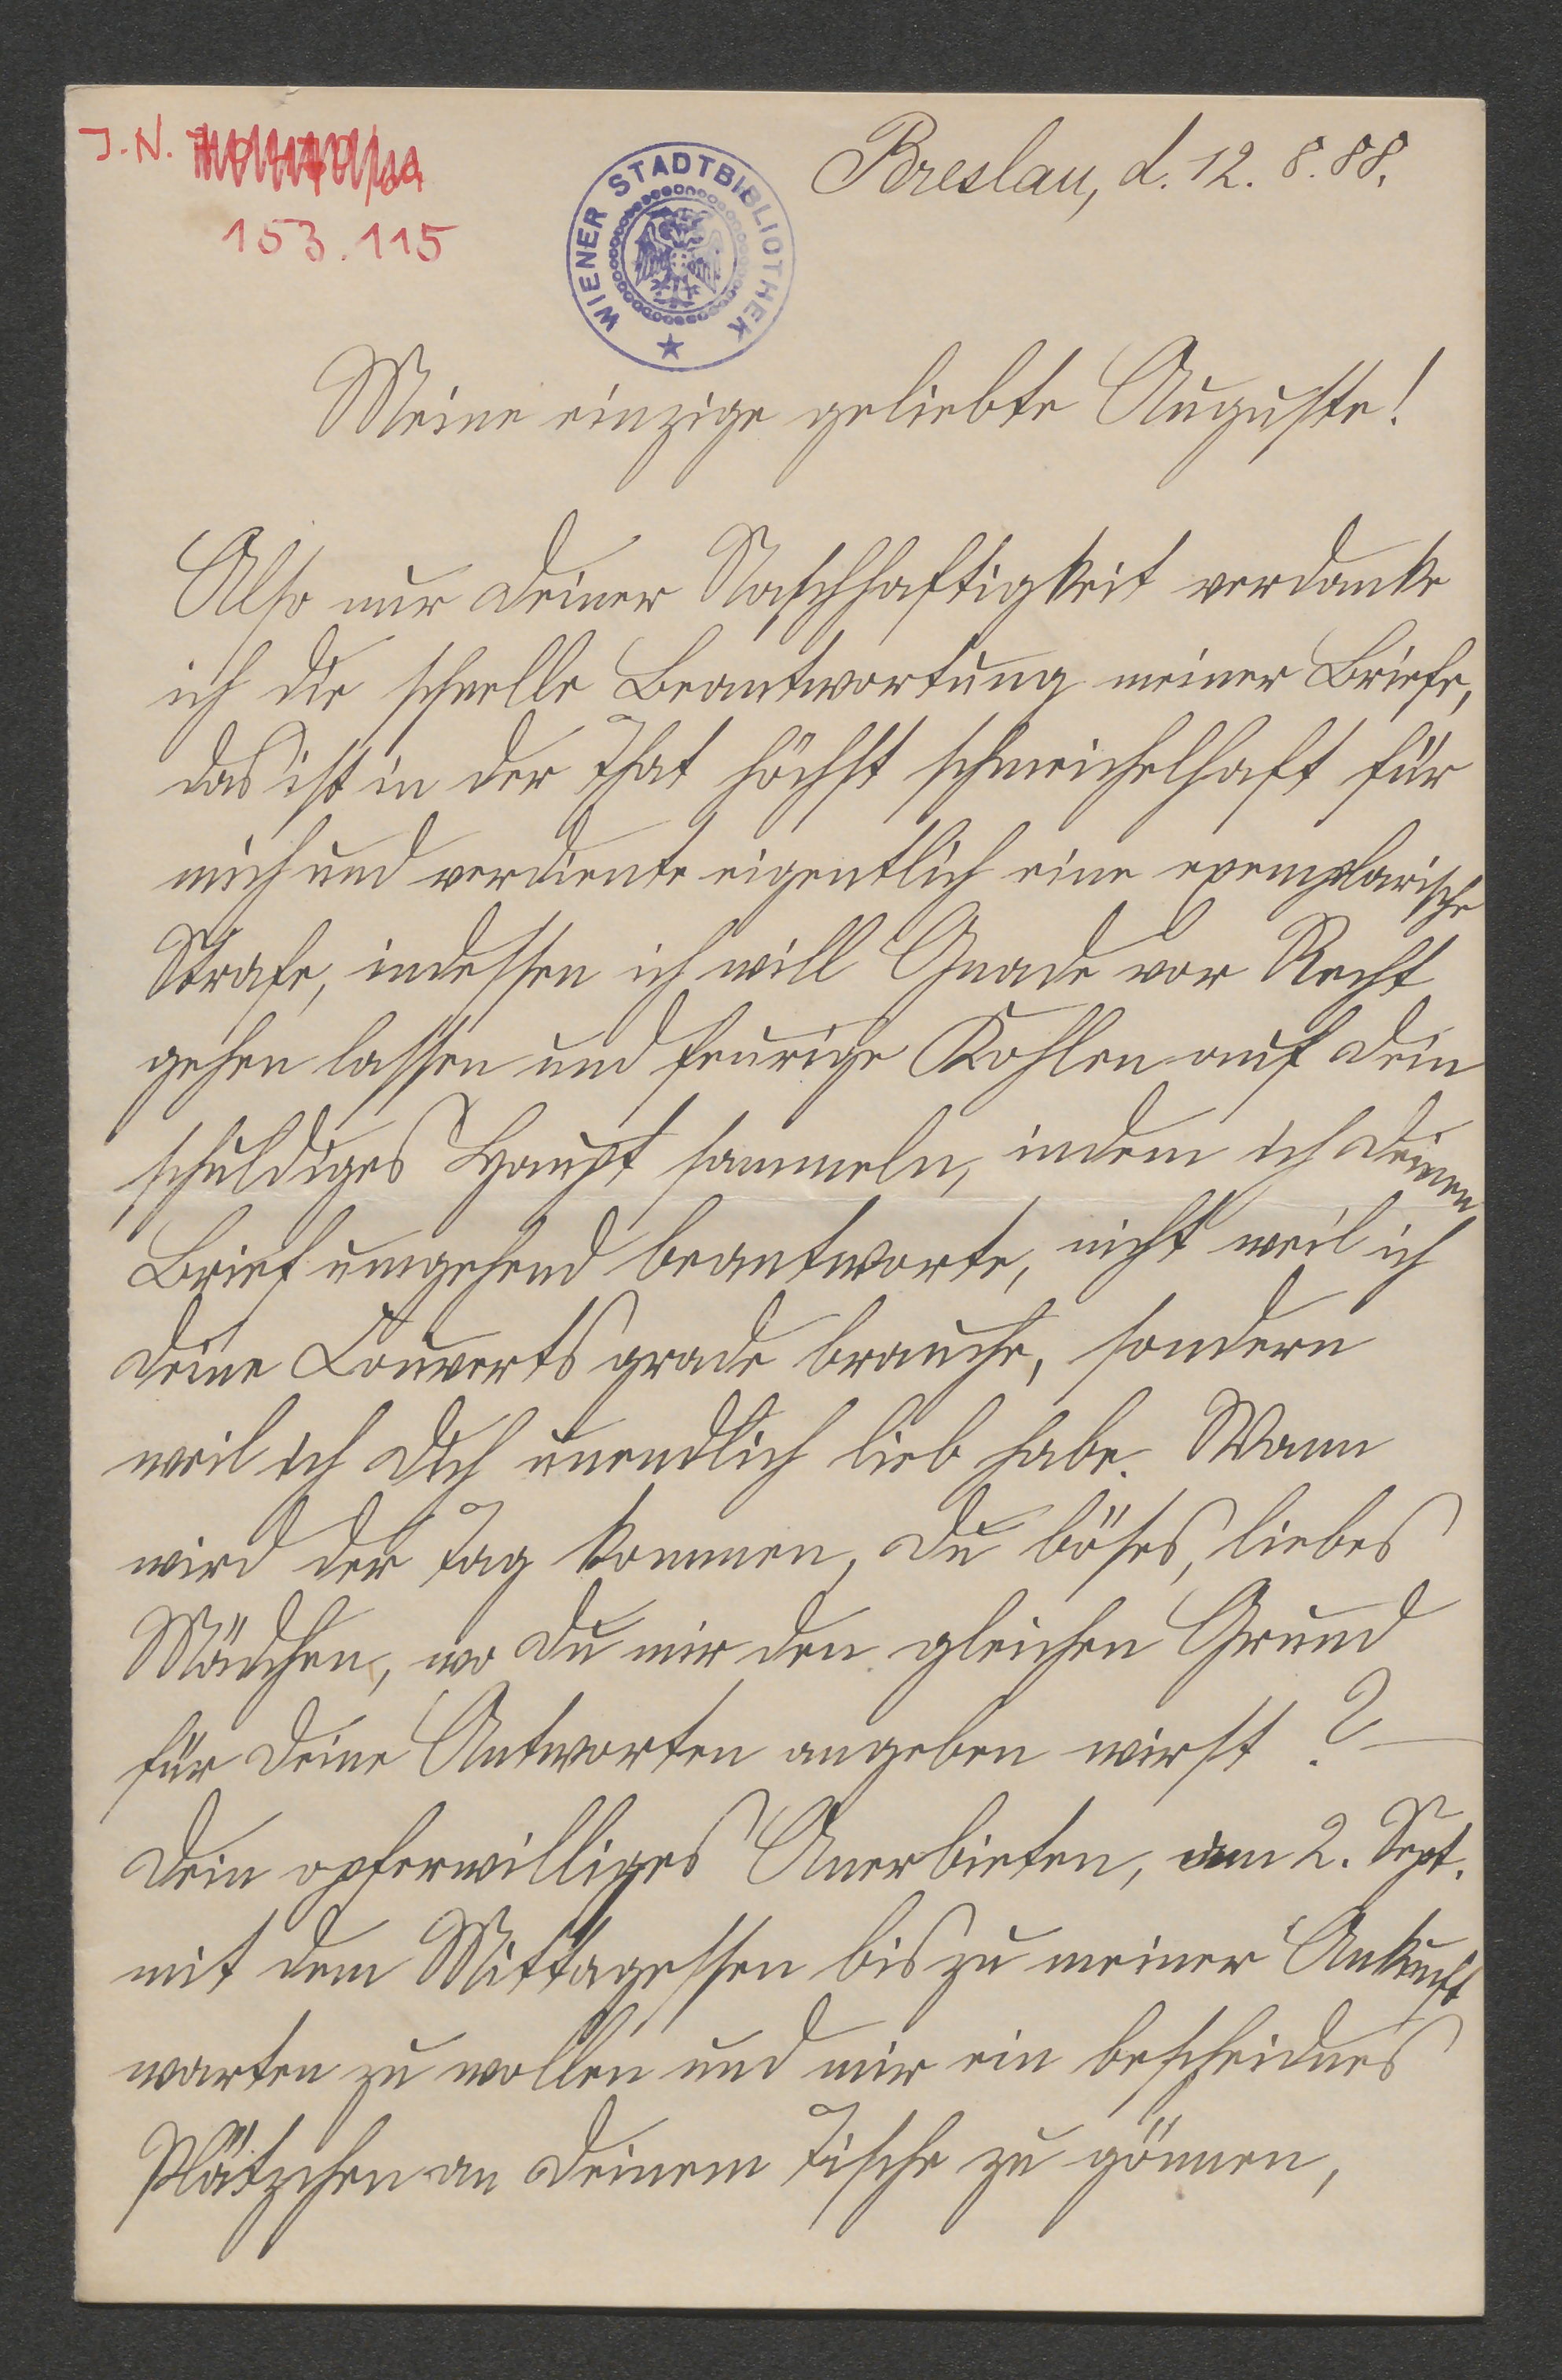 J. N.
153.115
WIENER STADTBIBLIOTHEK
Breslau, d. 12. 8. 88.
Meine einzige geliebte Auguste!
Also nur Deiner Naschhaftigkeit verdanke
ich die schnelle Beantwortung meiner Briefe,
das ist in der That höchst schmeichelhaft für
mich und verdiente eigentlich eine exemplarische
Strafe, indessen ich will Gnade vor Recht
gehen lassen und feurige Kohlen auf Dein
schuldiges Haupt sammeln, indem ich Deinen
Brief umgehend beantworte, nicht weil ich
Deine Couverts grade brauche, sondern
weil ich Dich unendlich lieb habe. Wann
wird der Tag kommen, Du böses, liebes
Mädchen, wo Du mir den gleichen Grund
für Deine Antworten angeben wirst? —
Dein opferwilliges Anerbieten, am 2. Sept.
mit dem Mittagessen bis zu meiner Ankunft
warten zu wollen und mir ein bescheidnes
Plätzchen an Deinem Tische zu gönnen,